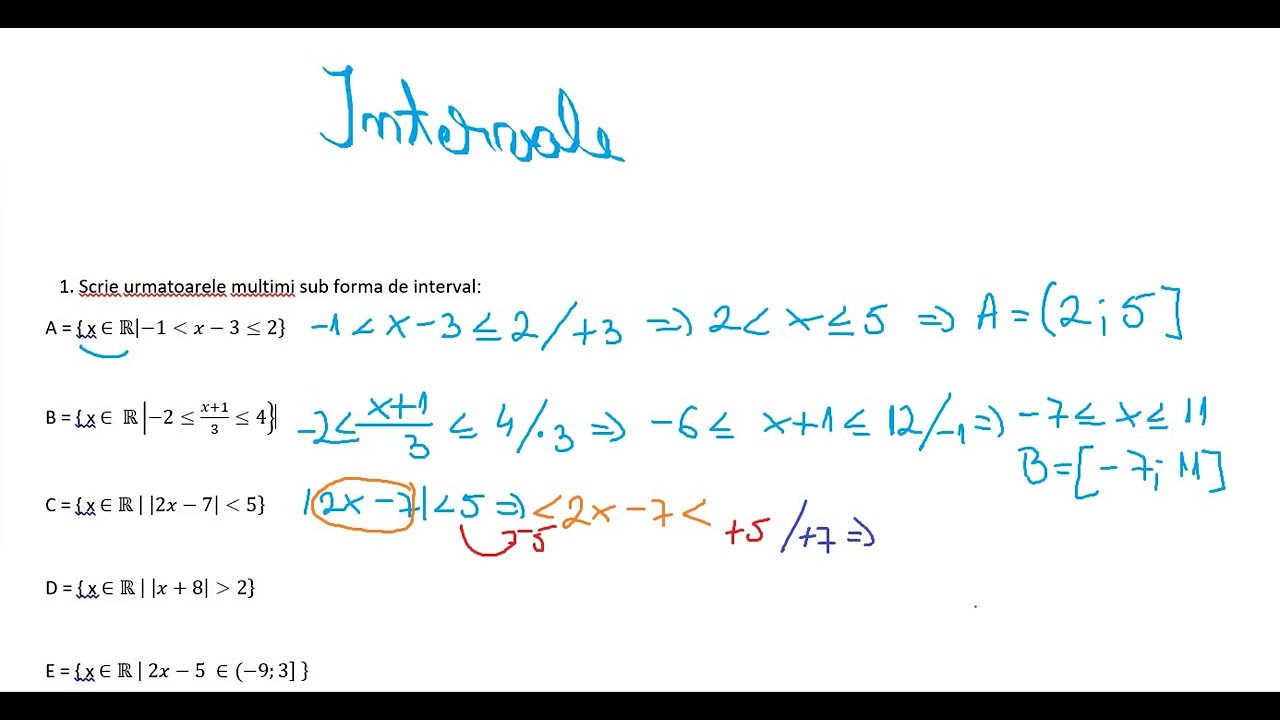 Intervale
1. Scrie urmatoarele multimi sub forma de interval:
A = {x ∈ ℝ|−1 < x − 3 ≤ 2} -1 < x - 3 ≤ 2 / +3 ⇒ 2 < x ≤ 5 ⇒ A = (2 ; 5]
B = {x ∈ ℝ |−2 ≤ (x+1)/3 ≤ 4}| -2 ≤ (x+1)/3 ≤ 4 / ·3 ⇒ -6 ≤ x+1 ≤ 12 / -1 ⇒ -7 ≤ x ≤ 11
B = [-7; 11]
C = {x ∈ ℝ | |2x − 7| < 5} |2x - 7| < 5 ⇒ < 2x - 7 <
-5 +5 / +7 ⇒
D = {x ∈ ℝ | |x + 8| > 2}
E = {x ∈ ℝ | 2x − 5 ∈ (−9; 3] }